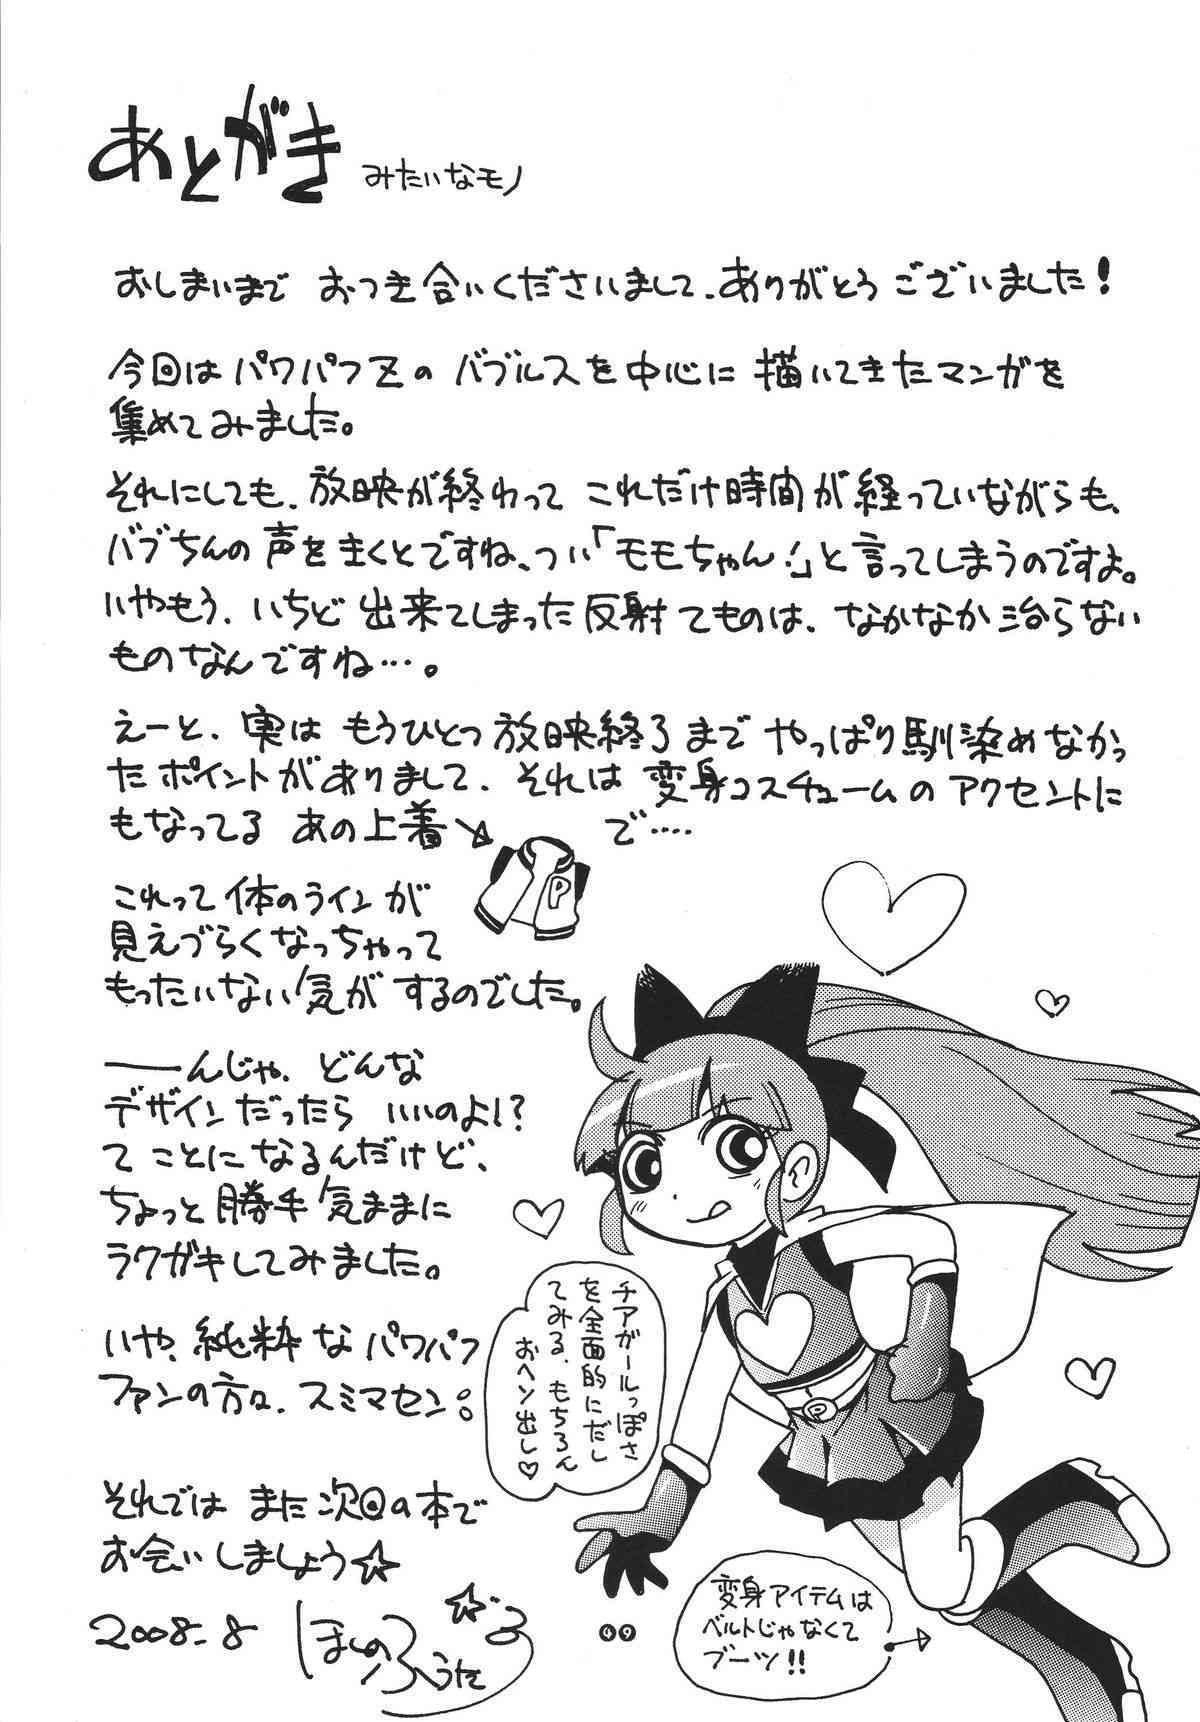 あとがき みたいなモノ
おしまいまで おつき合いくださいまして、ありがとうございました!
今回は パワパフZの バブルスを中心に 描いてきたマンガを
集めてみました。
それにしても、放映が終わって これだけ時間が経っていながらも、
バブちんの声をきくとですね、つい「モモちゃん!」と言ってしまうのですよ。
いやもう、いちど出来てしまった反射てものは、なかなか治らない
ものなんですね…。
えーと、実は もうひとつ 放映終了まで やっぱり馴染めなかっ
たポイントがありまして、それは 変身コスチュームのアクセントに
もなってる あの上着 で‥‥
P
これって 体のラインが
見えづらくなっちゃって
もったいない気が するのでした。
――んじゃ、どんな
デザインだったら いいのよ!?
て ことになるんだけど、
ちょっと 勝手気ままに
ラクガキしてみました。
いや、純粋な パワパフ
ファンの方々、スミマセン。
それでは また次回の本で
お会いしましょう☆
2008.8
チアガールっぽさ
を全面的にだし
てみる、もちろん
おヘソ出し♡
P
変身アイテムは
ベルトじゃなくて
ブーツ!!
49